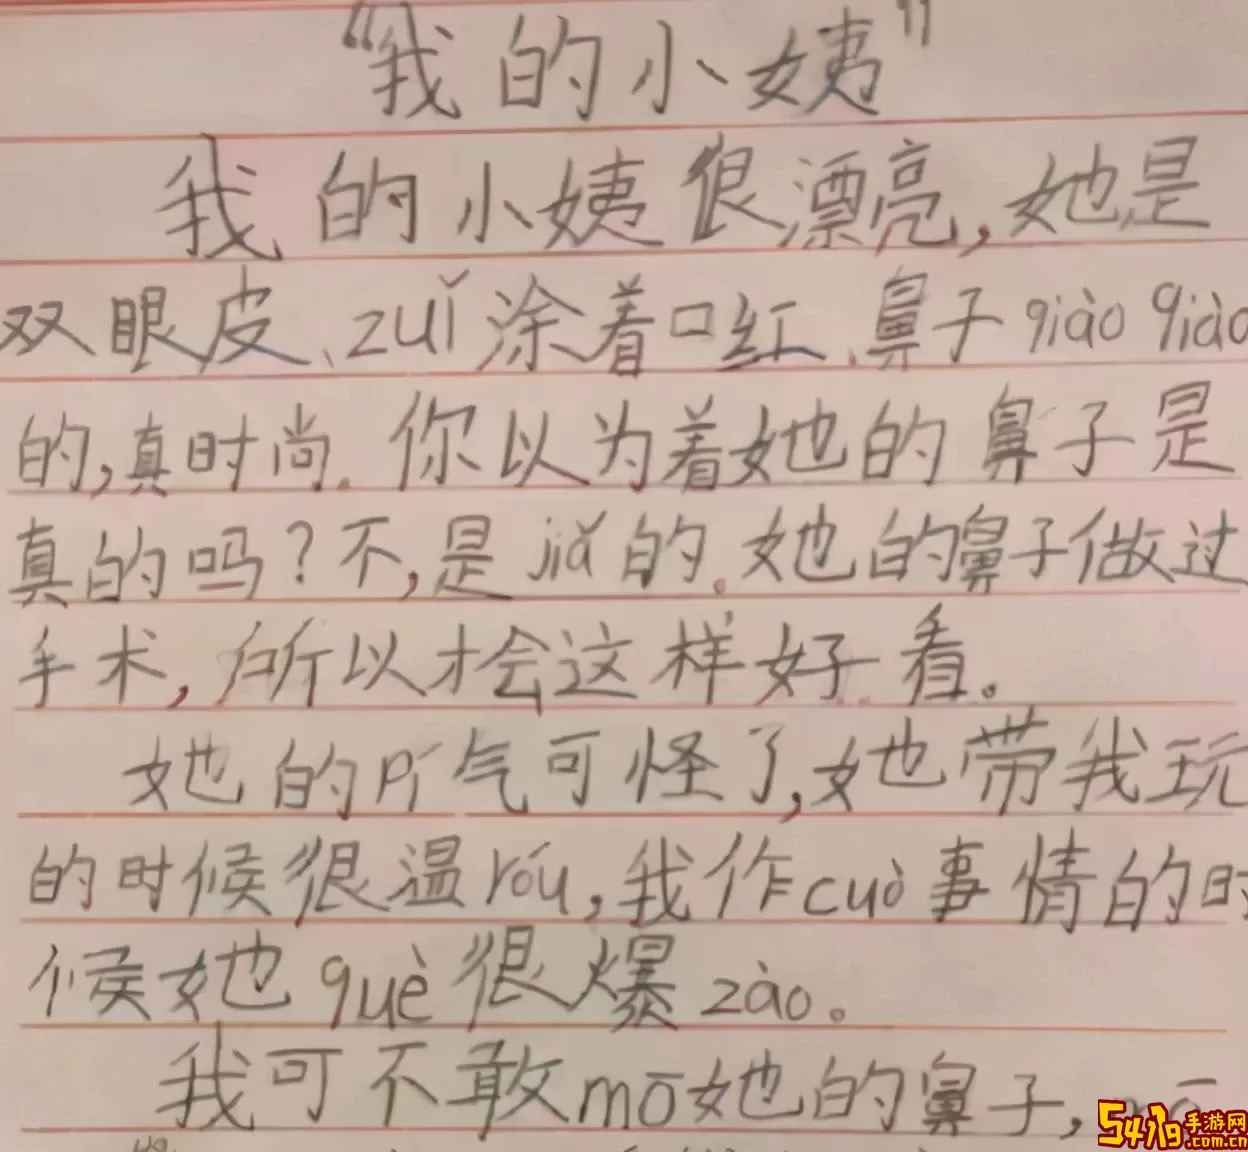 “我的小姨”
我的小姨很漂亮,她是
双眼皮、zuǐ涂着口红、鼻子qiào qiào
的,真时尚. 你以为着她的鼻子是
真的吗?不,是jiǎ的。她的鼻子做过
手术,所以才会这样好看。
她的pí气可怪了,她带我玩
的时候很温róu,我作cuò事情的时
候她què很爆zào。
我可不敢mō她的鼻子,
5417g手游网
.com.cn